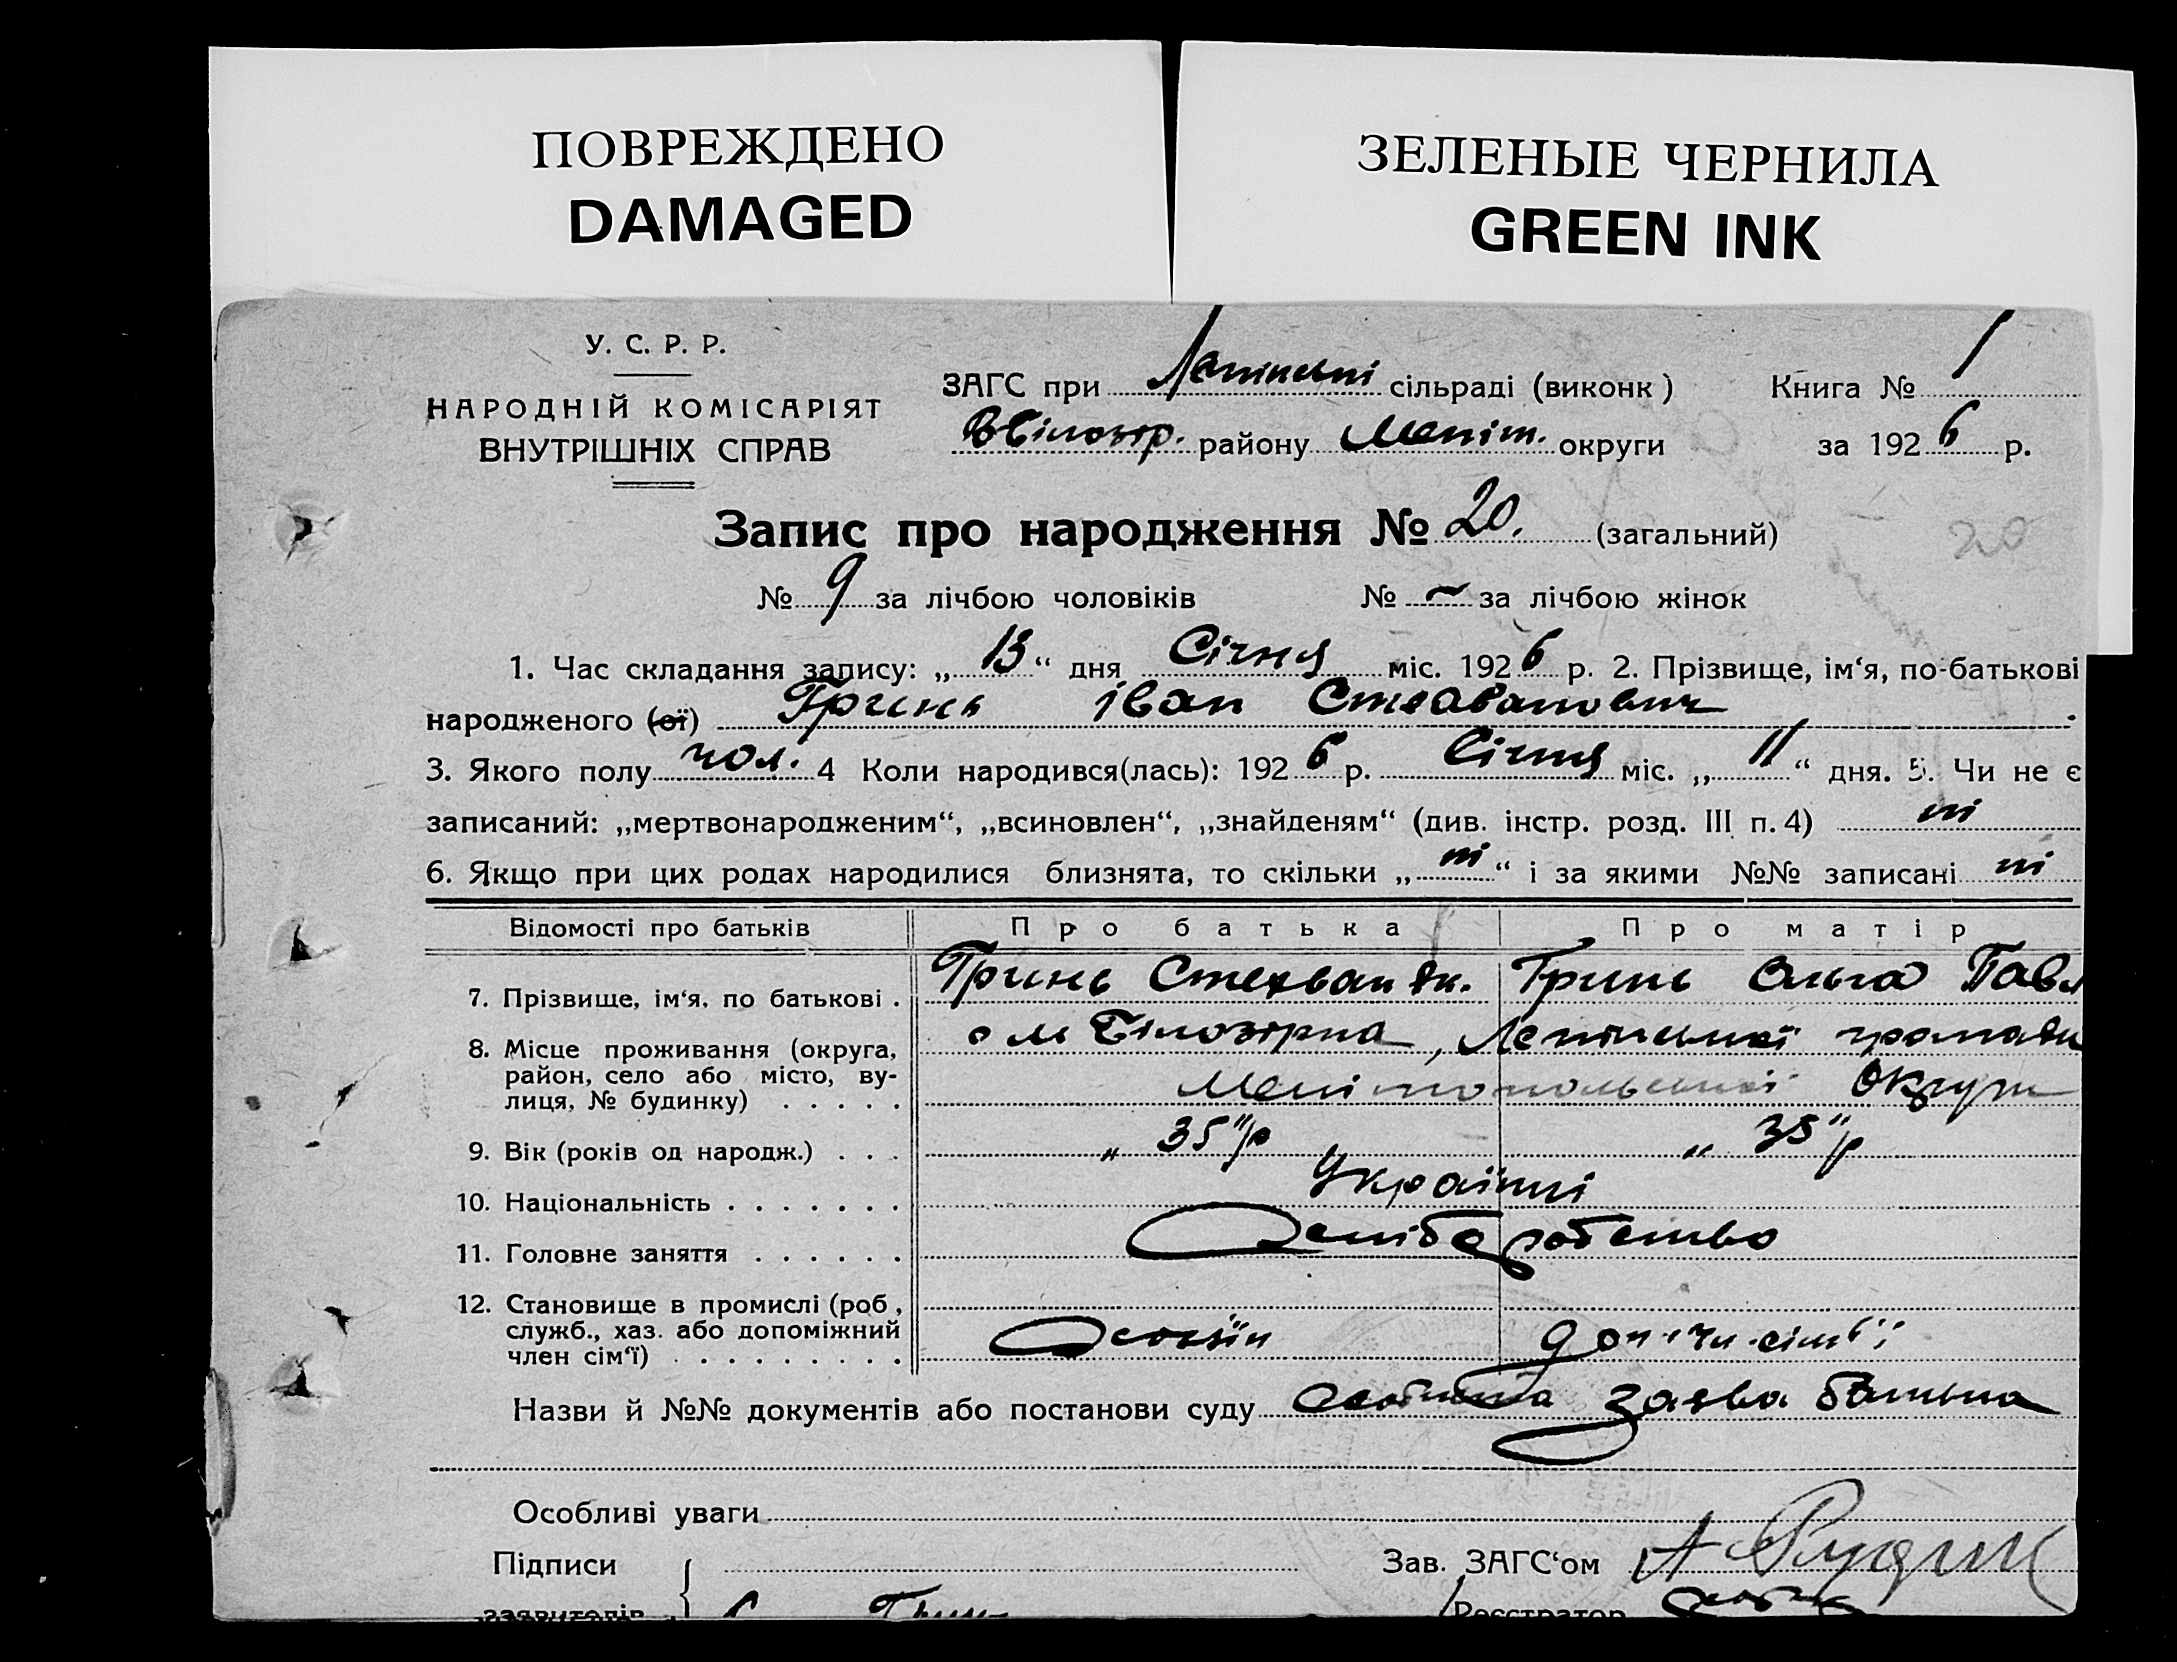 ПОВРЕЖДЕНО
DAMAGED
ЗЕЛЕНЫЕ ЧЕРНИЛА
GREEN INK
У. С. Р. Р.
НАРОДНІЙ КОМІСАРІЯТ
ВНУТРІШНІХ СПРАВ
ЗАГС при сільраді (виконк)
району Меліт. округи
Книга № 1
за 1926 р.
Запис про народження № 20. (загальний)
20
№ 9 за лічбою чоловіків № – за лічбою жінок
1. Час складання запису: „13“ дня Січня міс. 1926 р. 2. Прізвище, ім‘я, по-батькові
народженого (ої) Гринь Іван Стеаванович
3. Якого полу чол. 4 Коли народився(лась): 1926 р. Січня міс. „11“ дня. 5. Чи не є
записаний: „мертвонародженим“, „всиновлен“, „знайденям“ (див. інстр. розд. III п. 4) ні
6. Якщо при цих родах народилися близнята, то скільки „ні“ і за якими №№ записані ні
Відомості про батьків Про батька Про матір
7. Прізвище, ім‘я, по батькові . Гринь Стехван Як. Гринь Ольга Павл
8. Місце проживання (округа, район, село або місто, вулиця, № будинку) . . . . . Білозірка, громади
Мелітопольської Округи
9. Вік (років од народж.) . . . „ 35 "/р „ 35 "/р
10. Національність . . . . . . . Українці
11. Головне заняття . . . . . .
12. Становище в промислі (роб,
служб., хаз. або допоміжний
член сім‘ї) . . . . . . . . .
Назви й №№ документів або постанови суду заява батька
Особливі уваги
Підписи Зав. ЗАГС‘ом
заявителів Реєстратор